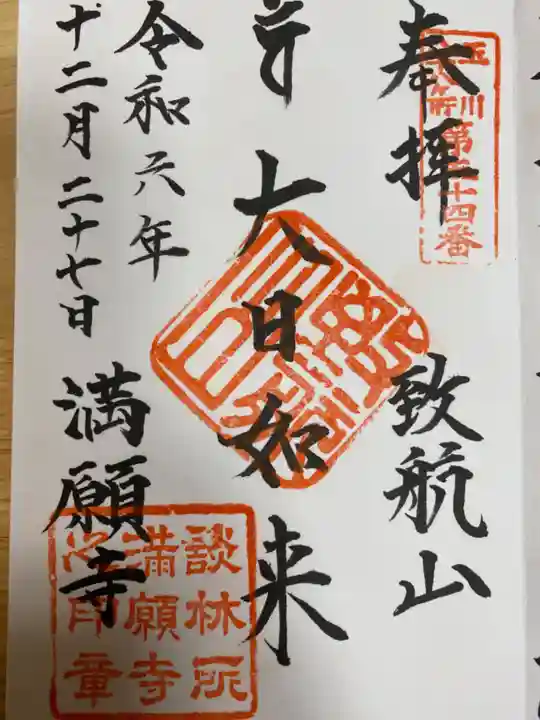 奉拝
玉川
第三十四番
致航山
大日如来
令和六年
十二月二十七日
満願寺
談林所
満願寺
之印章